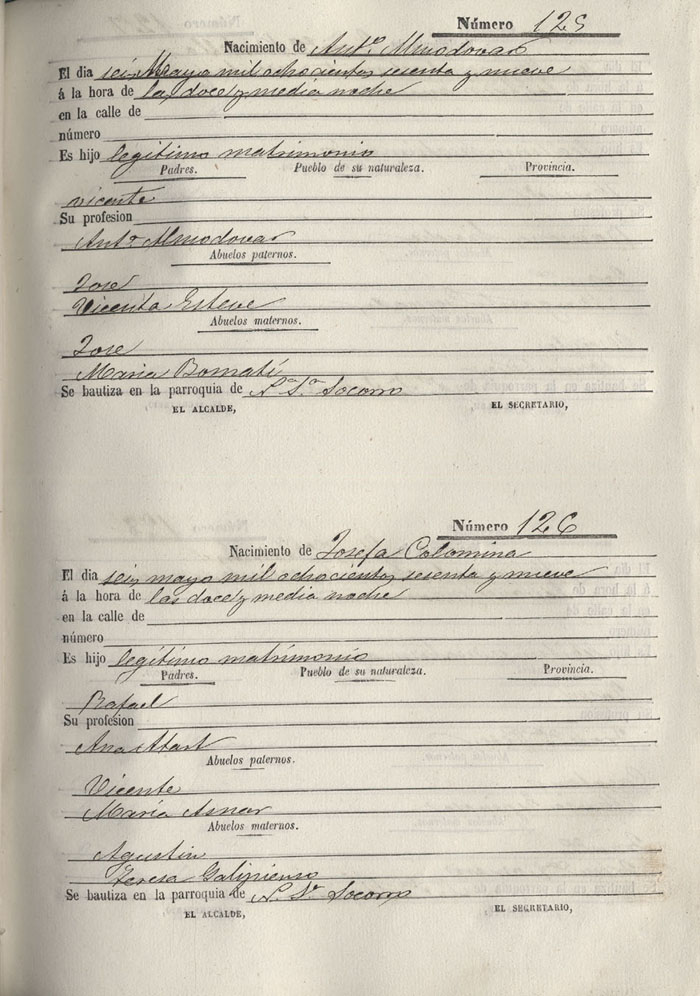 Número 125
Nacimiento de Antº Almodovar
El dia seis Mayo mil ochocientos sesenta y nueve
á la hora de las doce y media noche
en la calle de
número
Es hijo legitimo matrimonio
Padres. Pueblo de su naturaleza. Provincia.
vicente
Su profesion
Antª Almodovar
Abuelos paternos.
José
Vicenta Esteve
Abuelos maternos.
José
Maria Bomatí
Se bautiza en la parroquia de Nª Sª Socorro
EL ALCALDE, EL SECRETARIO,
Número 126
Nacimiento de Josefa Colomina
El dia seis mayo mil ochocientos sesenta y nueve
á la hora de las doce y media noche
en la calle de
número
Es hijo legitimo matrimonio
Padres. Pueblo de su naturaleza. Provincia.
Rafael
Su profesion
Ana
Abuelos paternos.
Vicente
Maria Asnar
Abuelos maternos.
Agustin
Teresa Galipienso
Se bautiza en la parroquia de N. Sª Socorro
EL ALCALDE, EL SECRETARIO,